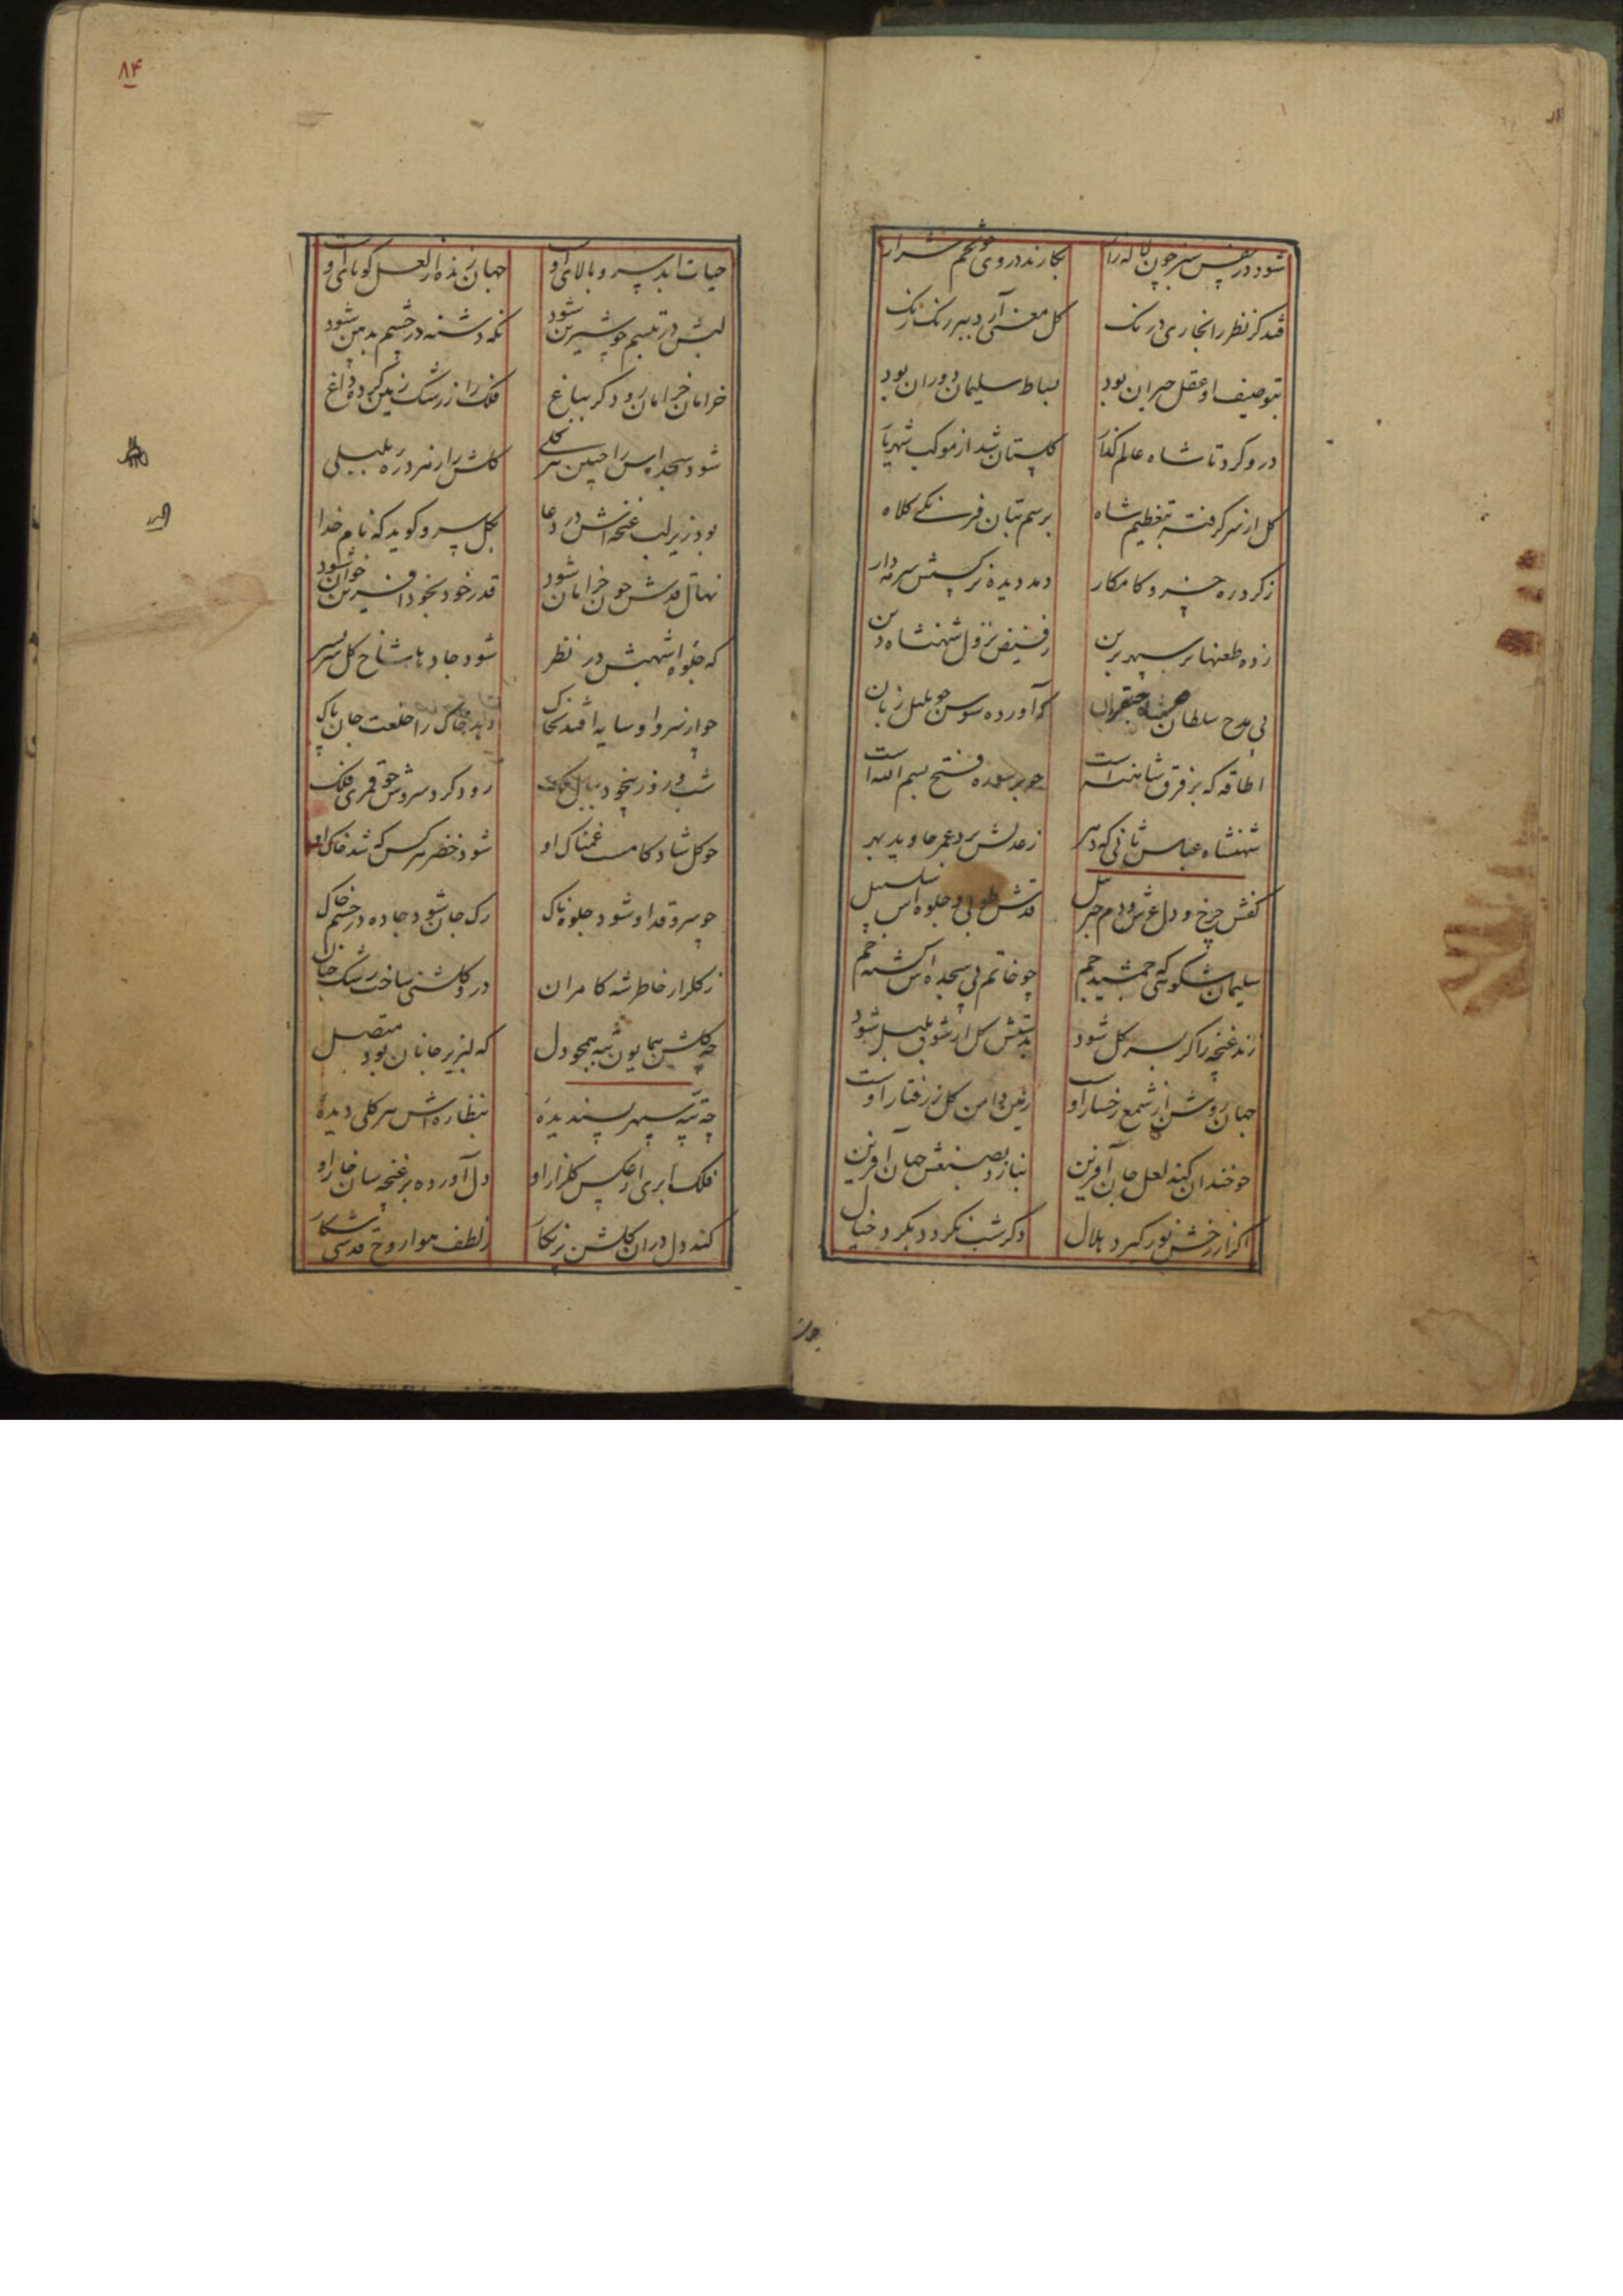 شود در نفس سبز چون لاله زار بکارند در وی چو تخم شرار
فتد کر نظر را نجاری درنک کل معنی آرد ببر رنک رنک
بتوصیف او عقل حیران بود بساط سلیمان دوران بود
درو کرد تا شاه عالم کذار کلستان شد از موکب شهریار
کل از سر کرفته بتعظیم شاه برسم بتان فرنکی کلاه
ز کرد ره خسرو کامکار دمد دیده نرکسش سرمه دار
زده طعنها بر سپهر برین ز فیض نزول شهنشاه دین
پی مدح سلطان که آورده سوسن چو بلبل زبان
اطاقه که بر فرق شاهنشه است چو بر سوره فتح بسم الله است
شهنشاه عباس ثانی که دهر ز عدلش برد عمر جاوید بهر
کفش چرخ و دل عرش و دم جبرئیل قدش طوبی و جلوه اش سلسبیل
سلیمان شکوهی که جمشید جم چو خاتم پی سجده اش کشته خم
زند غنچه را کر بسر کل شود بدستش کل از شوق بلبل شود
جهان روشن از شمع رخسار اوست زمین دامن کل ز رفتار اوست
چو خندان کند لعل جان آفرین بنازد بصنعش جهان آفرین
اکر از رخش نور کیرد هلال دکر شب نکردد بکرد خیال
چون
۸۴
حیات ابد سرو بالای اوست جهان زنده از لعل کویای اوست
لبش در تبسم چو شیرین شود نکه دشنه در چشم بدبین شود
خرامان خرامان رود کر بباغ فلک را ز رشک زمین کرده داغ
شود سجده اش را جبین هر کلی کلش را ز هر دره بلبلی
بود زیر لب غنچه اش در دعا بکل سرو کوید که نام خدا
نهال قدش چون خرامان شود قدر خود بخود آفرین خوان شود
که جلوه اشهبش در نظر شود جادها شاخ کل سر بسر
چو از سرو او سایه افتد بخاک دهد خاک را خلعت جان پاک
شب و روز بیخود رود کرد سروش چو قمری فلک
چو کل شاد کامست غمناک او شود خضر هر کس که شد خاک او
چو سرو قد او شود جلوه ناک رک جان شود جاده در جسم خاک
ز کلزار خاطر شه کامران درو کلشنی ساخت رشک جنان
چه کلشن همایون تپه همچو دل که لبریز جانان بود متصل
چه تپه سپهر پسندیده بنظاره اش هر کلی دیده
فلک ابری از عکس کلزار او دل آورده بر غنچه سان خار او
کند دل در ان کلشن پر نکار ز لطف هوا روح قدسی شکار